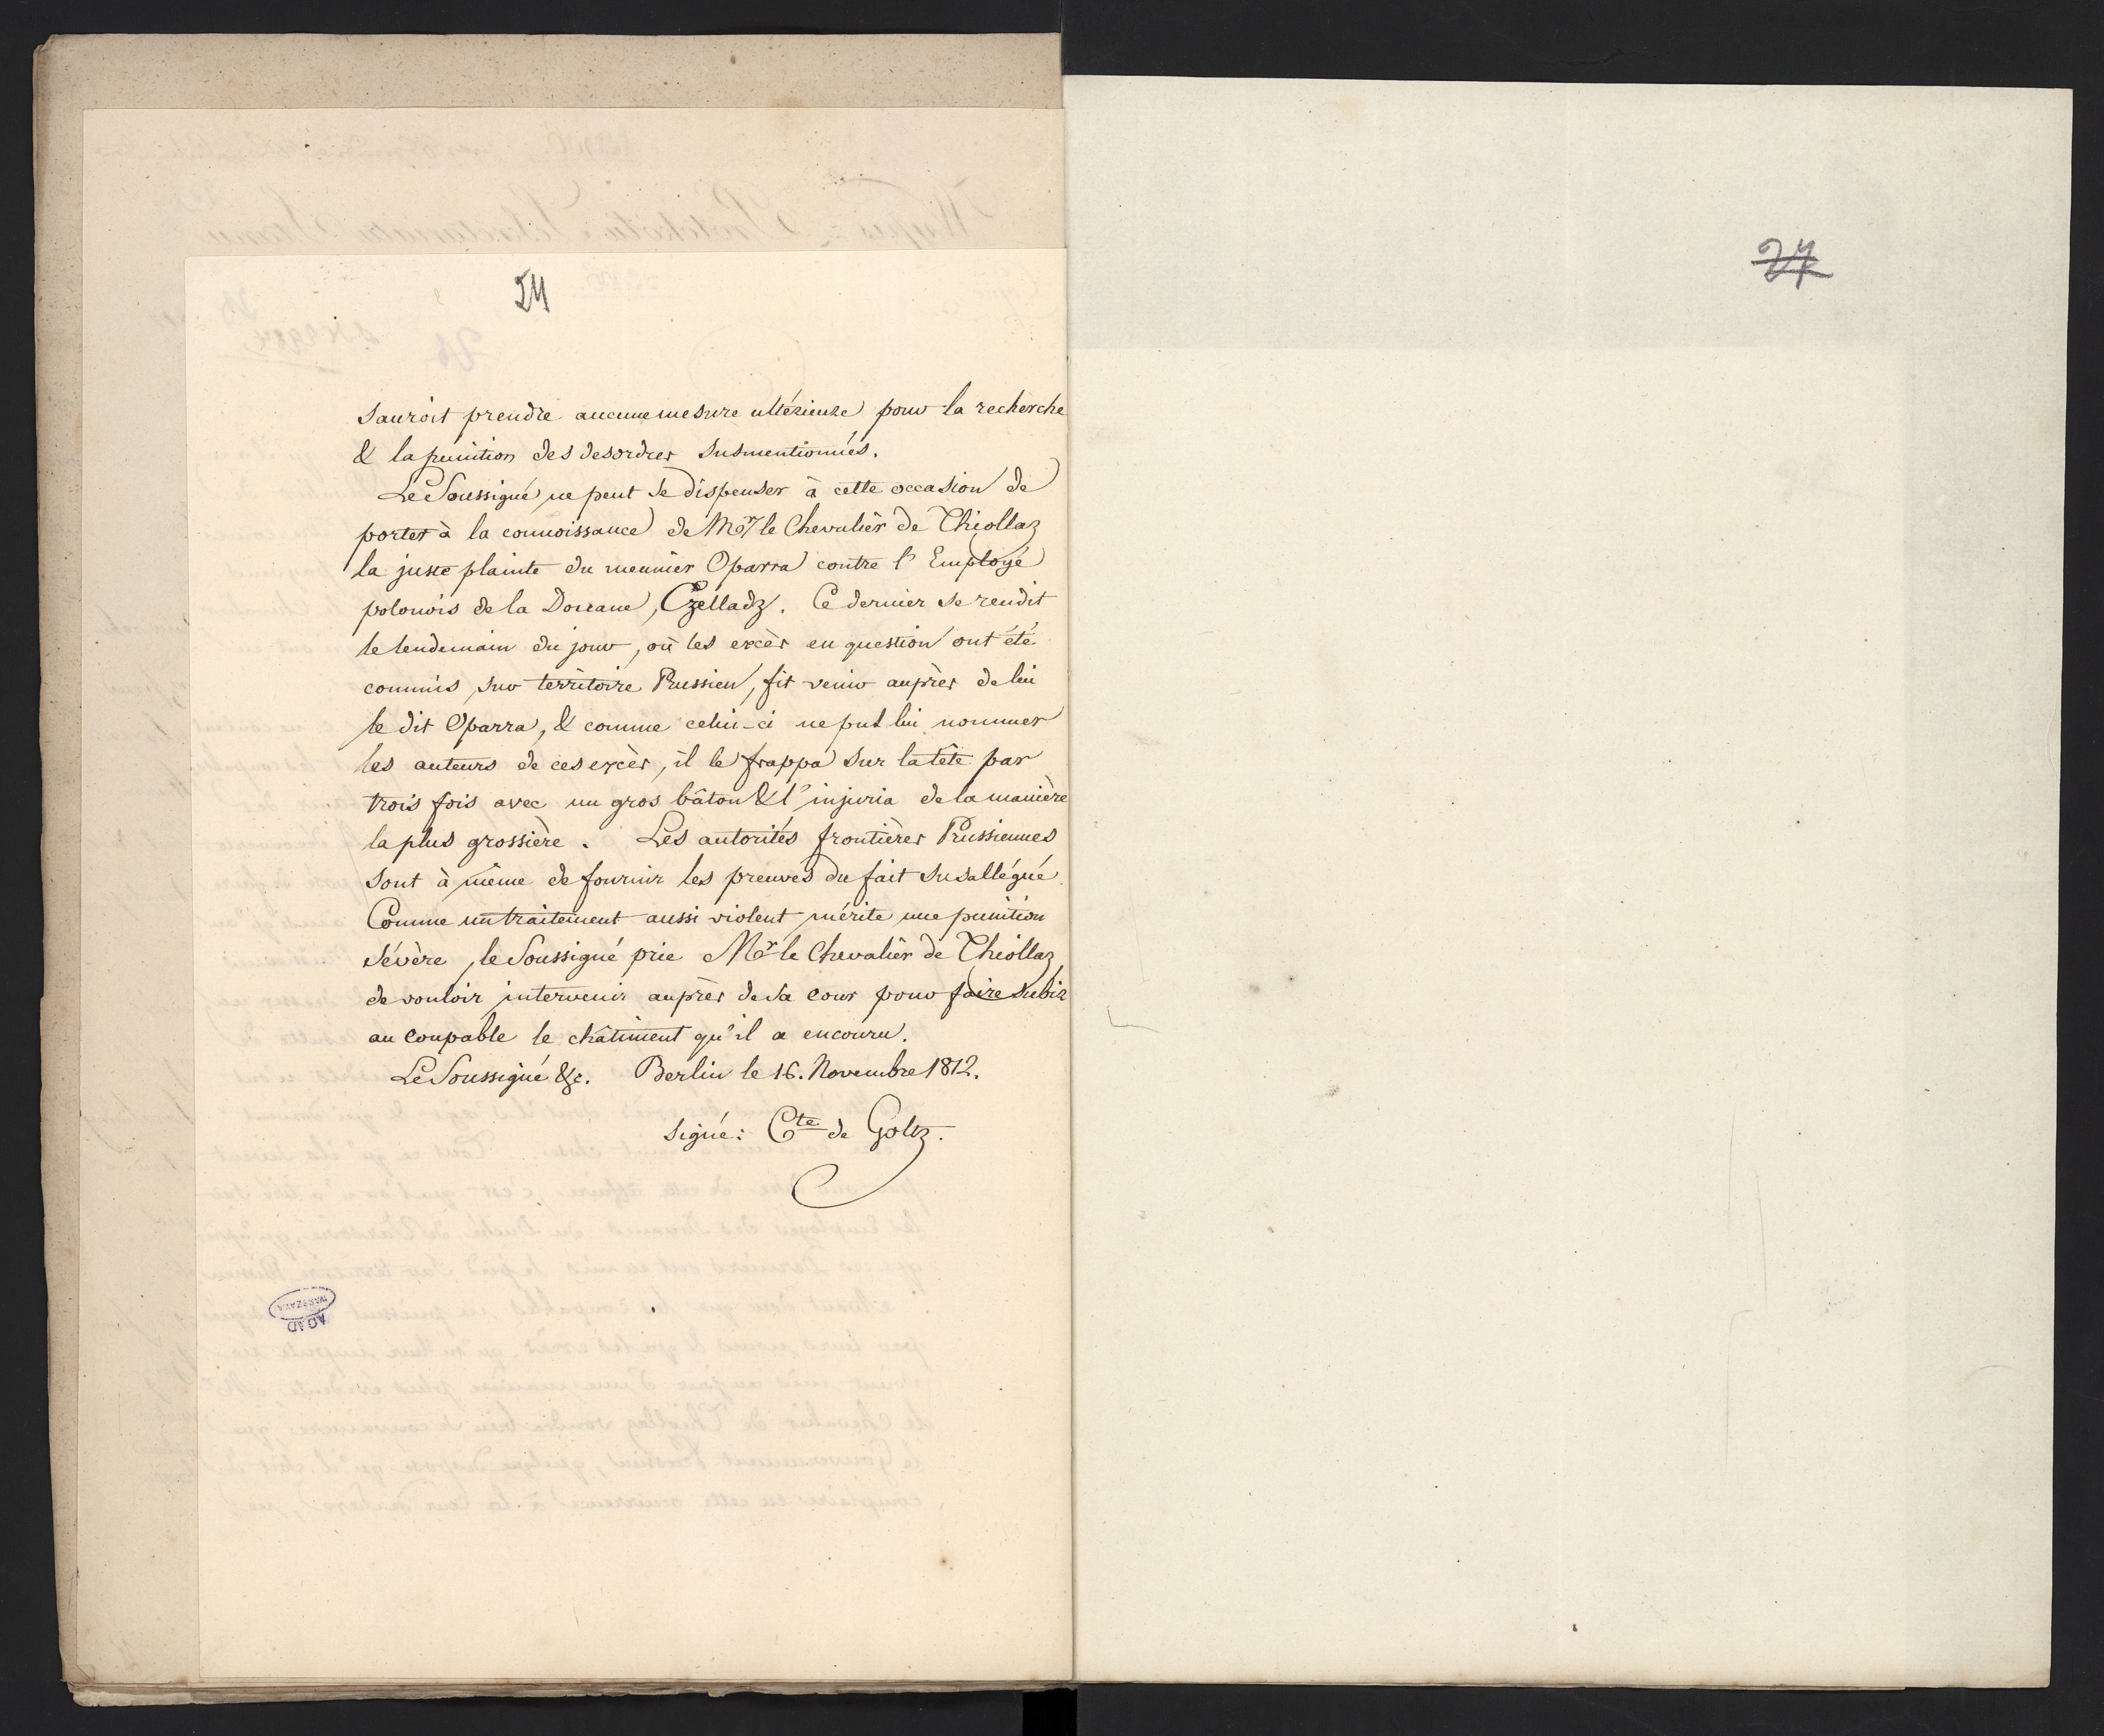 24
sauroit prendre aucune mesure ultérieure pour la recherche
& la punition des desordres susmentionnés.
Le Soussigné ne peut se dispenser à cette occasion de
porter à la connoissance de Mr le Chevalier de Thiollaz
la juste plainte du meunier Oparra contre l'Employé
polonois de la Douane, Czelladz. Ce dernier se rendit
le lendemain du jour, où les excès en question ont été
commis, sur territoire Prussien, fit venir auprès de lui
le dit Oparra, & comme celui-ci ne put lui nommer
les auteurs de ces excès, il le frappa sur la tête par
trois fois avec un gros bâton & l'injuria de la manière
la plus grossière. Les autorités frontières Prussiennes
sont à même de fournir les preuves du fait susallégué
Comme un traitement aussi violent mérite une punition
sévère, le Soussigné prie Mr le Chevalier de Thiollaz,
de vouloir intervenir auprès de sa cour pour faire subir
au coupable le châtiment qu'il a encouru.
Le Soussigné &c. Berlin le 16. Novembre 1812.
signé: Cte de Goltz.
AGAD
WARSZAWA
27